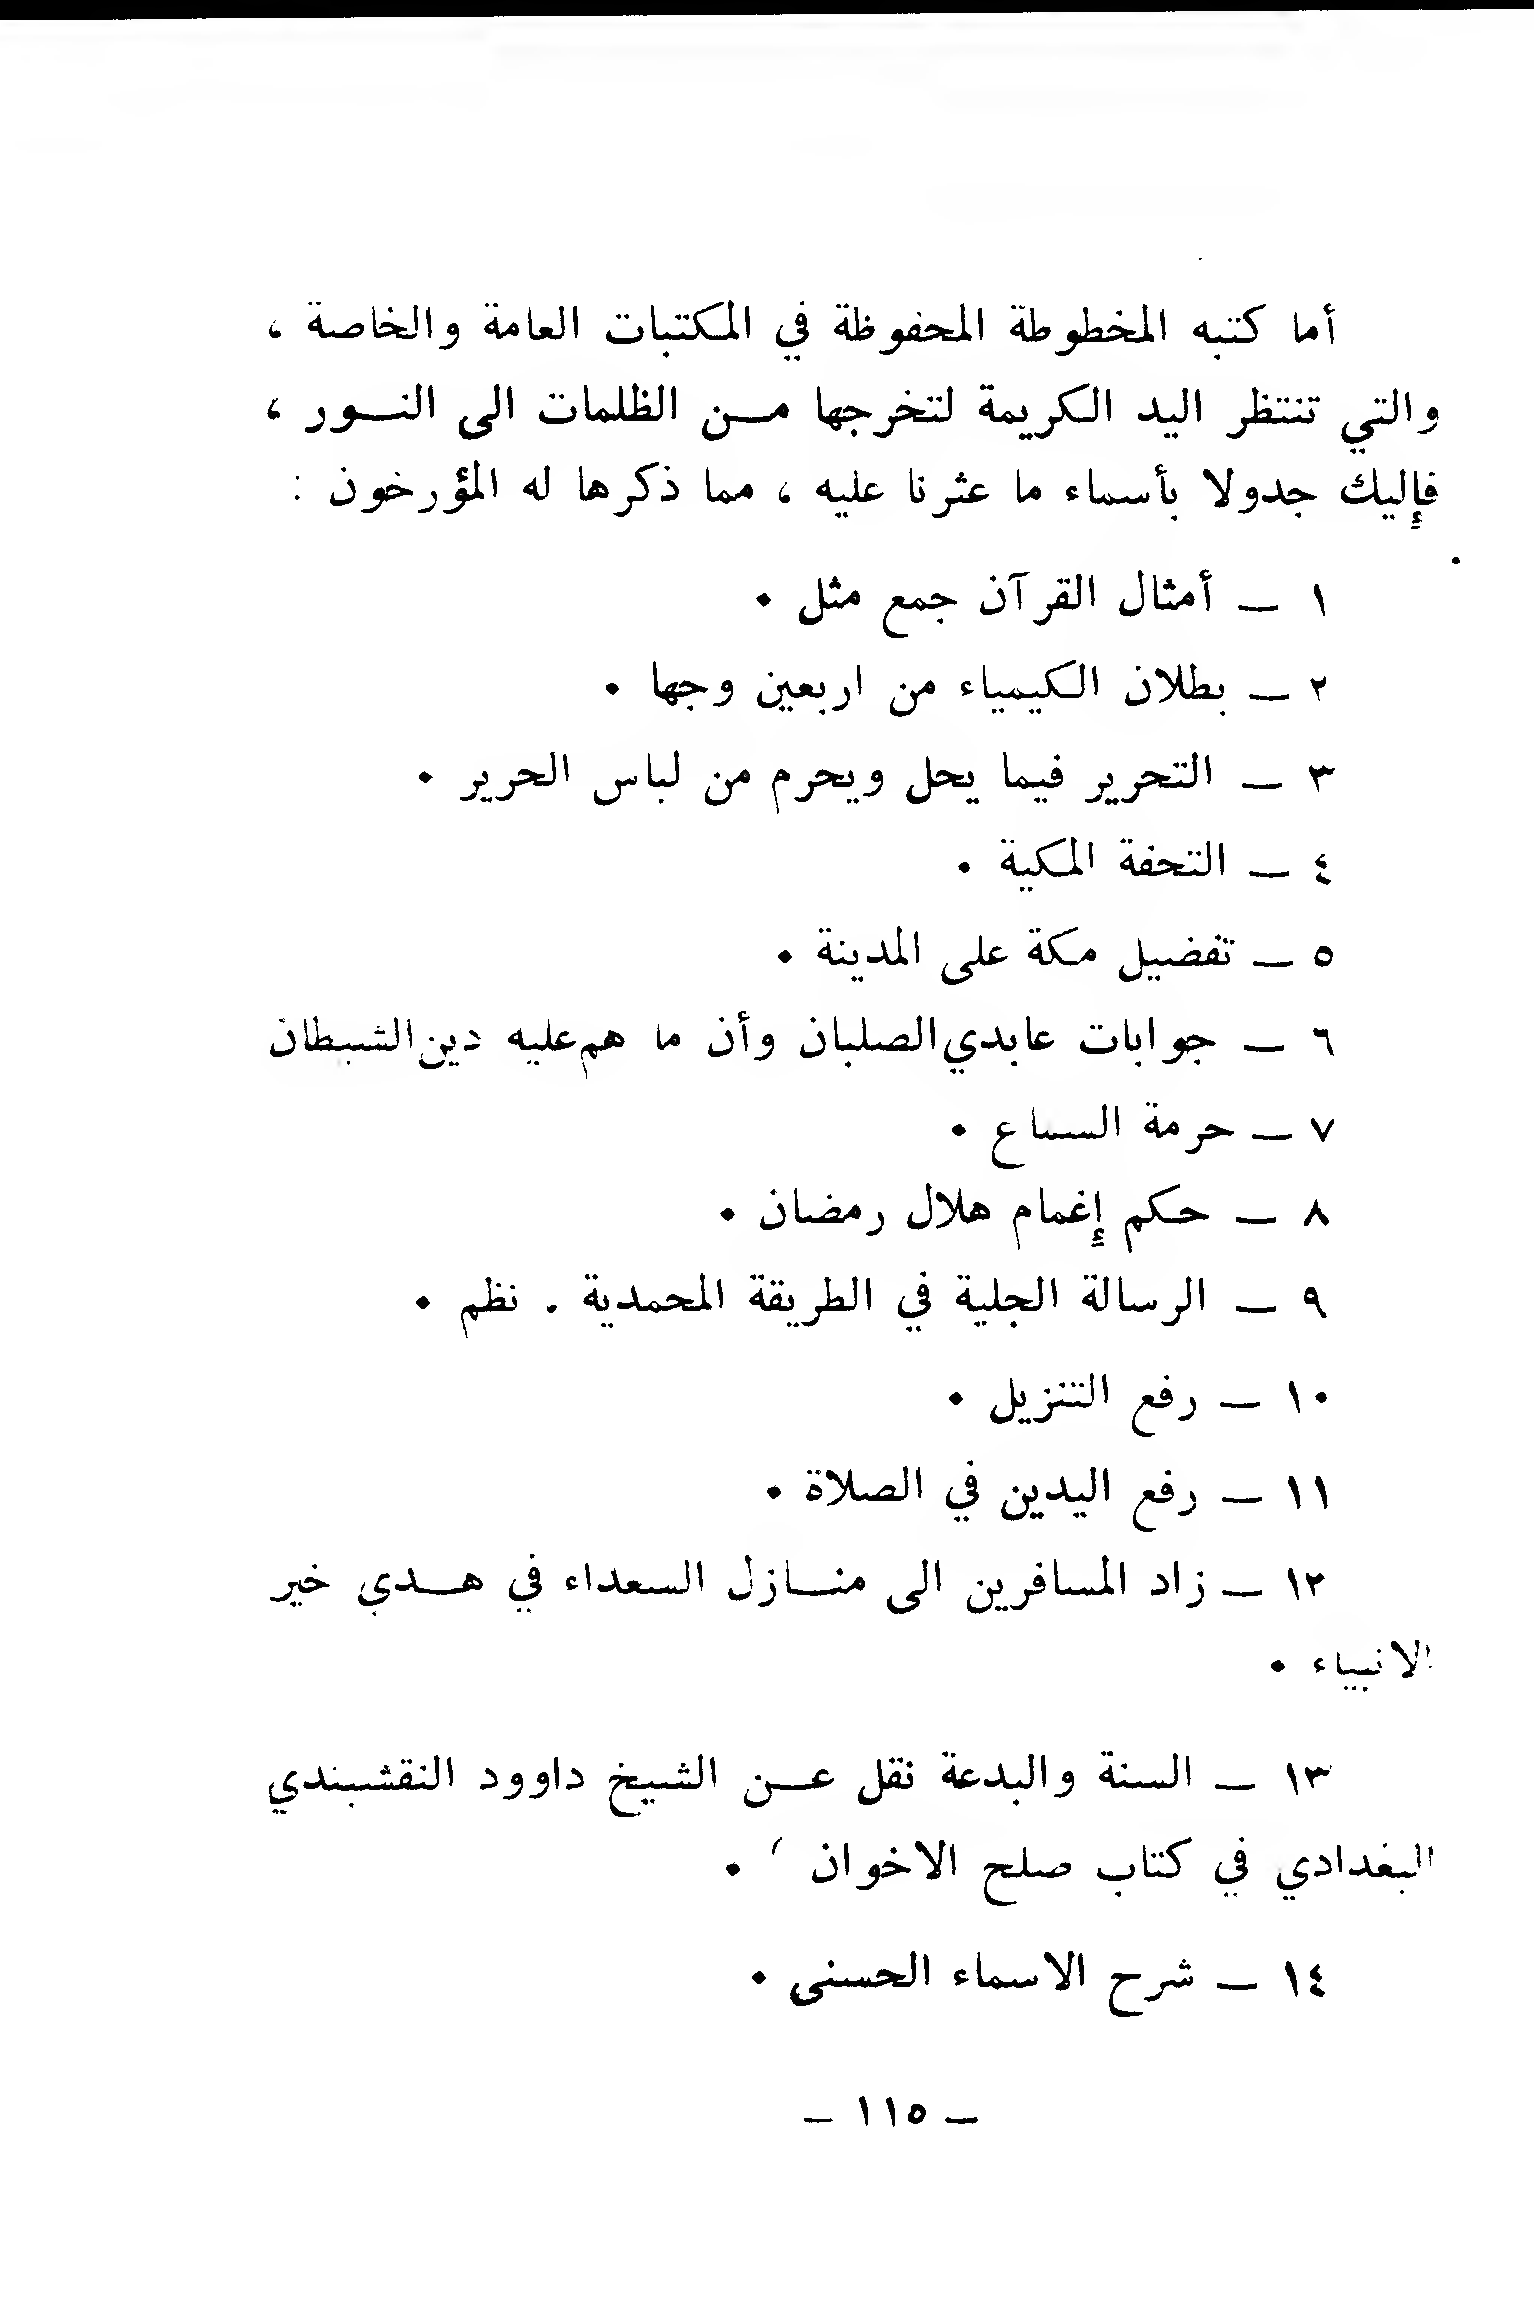 أما كتبه المخطوطة المحفوظة في المكتبات العامة والخاصة ،
والتي تنتظر اليد الكريمة لتخرجها من الظلمات الى النور ،
فإليك جدولا بأسماء ما عثرنا عليه ، مما ذكرها له المؤرخون :
١ ــ أمثال القرآن جمع مثل .
٢ ــ بطلان الكيمياء من اربعين وجها .
٣ ــ التحرير فيما يحل ويحرم من لباس الحرير .
٤ ــ التحفة المكية .
٥ ــ تفضيل مكة على المدينة .
٦ ــ جوابات عابدي الصلبان وأن ما هم عليه دين الشيطان
٧ ــ حرمة السماع .
٨ ــ حكم إغمام هلال رمضان .
٩ ــ الرسالة الجلية في الطريقة المحمدية . نظم .
١٠ ــ رفع التنزيل .
١١ ــ رفع اليدين في الصلاة .
١٢ ــ زاد المسافرين الى منازل السعداء في هدي خير
الانبياء .
١٣ ــ السنة والبدعة نقل عن الشيخ داوود النقشبندي
البغدادي في كتاب صلح الاخوان ) .
١٤ ــ شرح الاسماء الحسنى .
ــ ١١٥ ــ